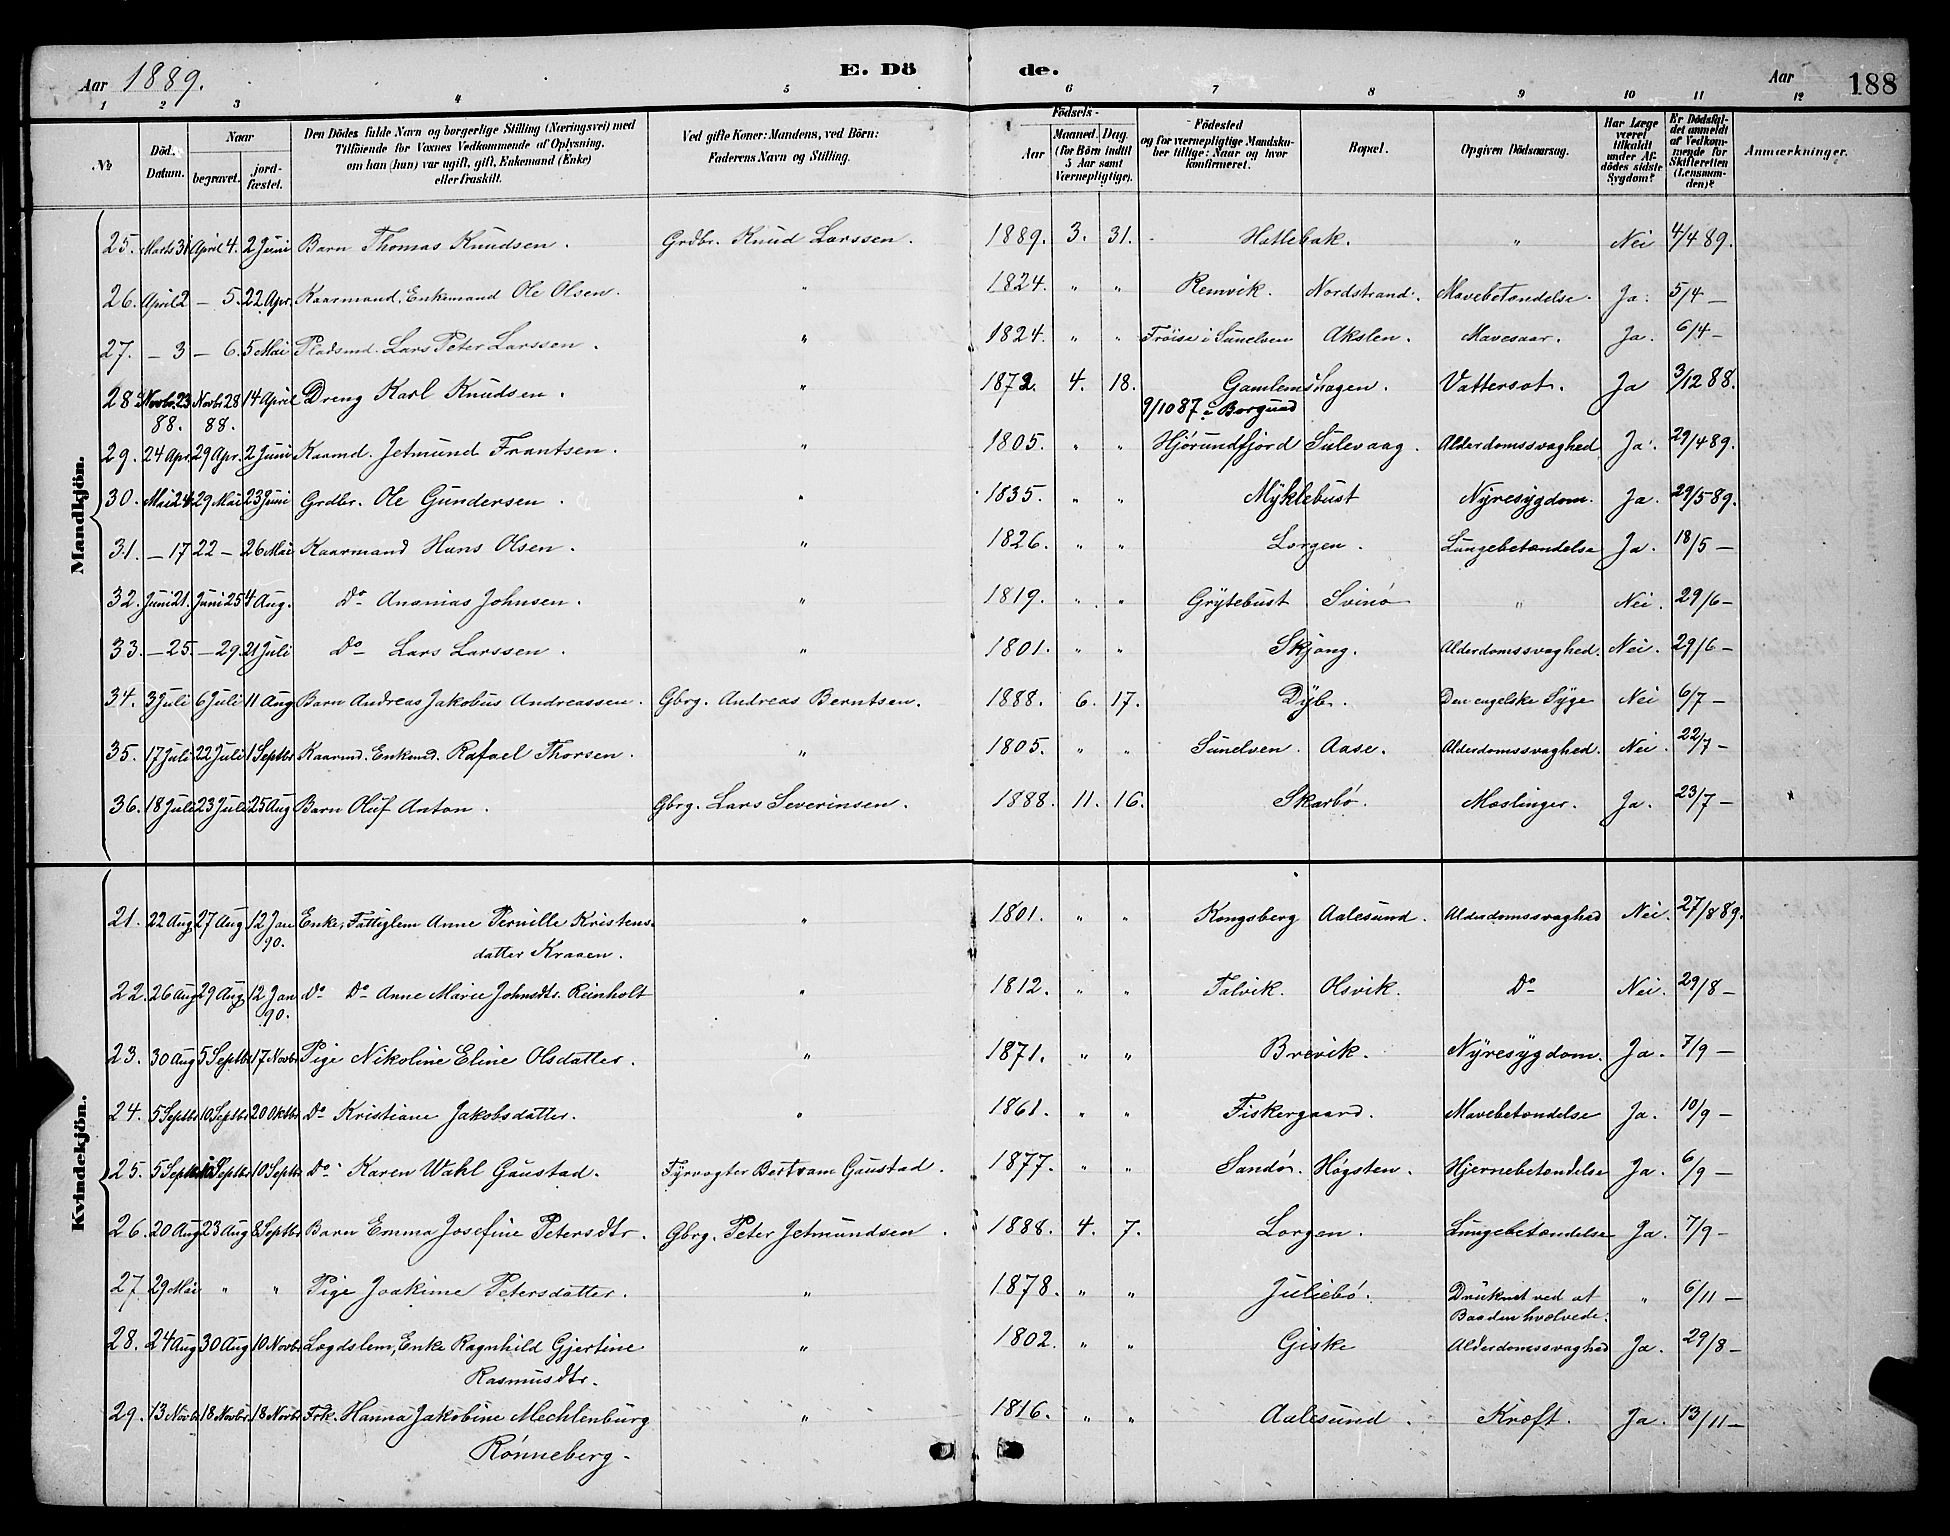 Aar 1889. E. Döde. Aar 188
1 2 3 4 5 6 7 8 9 10 11 12
№ Död. Datum. Naar begravet. jordfæstet. Den Dödes fulde Navn og borgerlige Stilling (Næringsvei) med Tilföiende for Voxnes Vedkommende af Oplysning, om han (hun) var ugift, gift, Enkemand (Enke) eller fraskilt. Ved gifte Koner: Mandens, ved Börn: Faderens Navn og Stilling. Födsels- Aar Maaned. Dag. (for Börn indtil 5 Aar samt Værnepligtige). Födested og for værnepligtige Mandskaber tillige: Naar og hvor konfirmeret. Bopæl. Opgiven Dödsaarsag. Har Læge været tilkaldt under Afdödes sidste Sygdom? Er Dödsfaldet anmeldt af Vedkommende for Skifteretten (Lensmanden)? Anmærkninger.
Mandkjön.
25. Marts 31 April 4. 2 Juni Barn Thomas Knudsen. Grdbr. Knud Larssen. 1889. 3. 31. Hatlebak. " Nei 4/4 89.
26. April 2 — 5. 22 Apr. Kaarmand, Enkemand Ole Olsen. " 1824. " " Remvik. Nordstrand. Mavebetændelse. Ja. 5/4 —
27. — 3 — 6. 5 Mai Pladsmd. Lars Peter Larssen. " 1824. " " Fröise i Sunelven Akslen. Mavesaar. Ja. 6/4 —
28 Novbr. 23 88. Novbr 28 88. 14 April Dreng Karl Knudsen. " 1872. 4. 18. Gamlemshagen. 9/10 87 i Borgund Vattersot. Ja 3/12 88.
29. 24 Apr. 29 Apr. 2 Juni Kaarmd. Jetmund Frantsen. " 1805. " " Hjörundfjord Sulevaag. Alderdomssvaghed Ja. 29/4 89.
30. Mai 24 29 Mai 23 Juni Grdbr. Ole Gundersen. " 1835. " " Myklebust Nyresygdom. Ja. 29/5 89.
31. — 17 22 — 26 Mai Kaarmand Hans Olsen. " 1826. " " Lorgen. Lungebetændelse Ja. 18/5 —
32. Juni 21. Juni 25 4 Aug. Do Ananias Johnsen. " 1819. " " Grytebust Svinö " Nei. 29/6 —
33. — 25. — 29. 21 Juli Do Lars Larssen. " 1801. " " Skjong. Alderdomssvaghed. Nei. 29/6 —
34. 3 Juli 6 Juli 11 Aug Barn Andreas Jakobus Andreassen. Gbrg. Andreas Berntsen. 1888. 6. 17. Dyb. Den engelske Syge Nei 6/7 —
35. 17 Juli 22 Juli 1 Septbr Kaarmd. Enkemd. Rafael Thorsen. " 1805. " " Sunelven. Aase. Alderdomssvaghed. Nei. 22/7 —
36. 18 Juli 23 Juli 25 Aug Barn Oluf Anton. Gbrg. Lars Severinsen. 1888. 11. 16. Skarbö. Mæslinger. Ja. 23/7 —
Kvindekjön.
21. 22 Aug 27 Aug 12 Jan 90. Enke, Fattiglem Anne Pernille Kristens- " 1801. " " Kongsberg Aalesund. Alderdomssvaghed Nei. 27/8 89.
datter Kraaen.
22. 26 Aug 29 Aug. 12 Jan 90. Do Do Anne Marie Johnsdtr. Reinholt " 1812. " " Talvik. Olsvik. Do Nei. 29/8 —
23. 30 Aug 5 Septbr 17 Novbr Pige Nikoline Eline Olsdatter. " 1871. " " Brevik. Nyresygdom. Ja. 7/9 —
24. 5 Septbr 10 Septbr 20 Oktbr Do Kristiane Jakobsdatter. " 1861. " " Fiskergaard. Mavebetændelse Ja. 10/9 —
25. 5 Septbr Septbr 10 Septbr Do Karen Wahl Gaustad. Fyrvogter Bertram Gaustad. 1877. " " Sandö. Högsten. Hjernebetændelse Ja. 6/9 —
26. 20 Aug 23 Aug 8 Septbr Barn Emma Josefine Petersdtr. Gbrg. Peter Jetmundsen. 1888. 4. 7. Lorgen. Lungebetændelse Ja. 7/9 —
27 29 Mai " " Pige Joakime Petersdatter. " 1878. " " Juliebö. Druknet ved at Baaden hvælvede. " 6/11 —
28. 24 Aug 30 Aug 10 Novbr Lægdslem, Enke Ragnhild Gjertine " 1802. " " Giske Alderdomssvaghed Ja. 29/8 —
Rasmusdtr.
29. 13 Novbr 18 Novbr. 18 Novbr Frk. Hanna Jakobine Mechlenburg " 1816. " " Aalesund. Kræft. Ja. 13/11 —
Rönneberg.